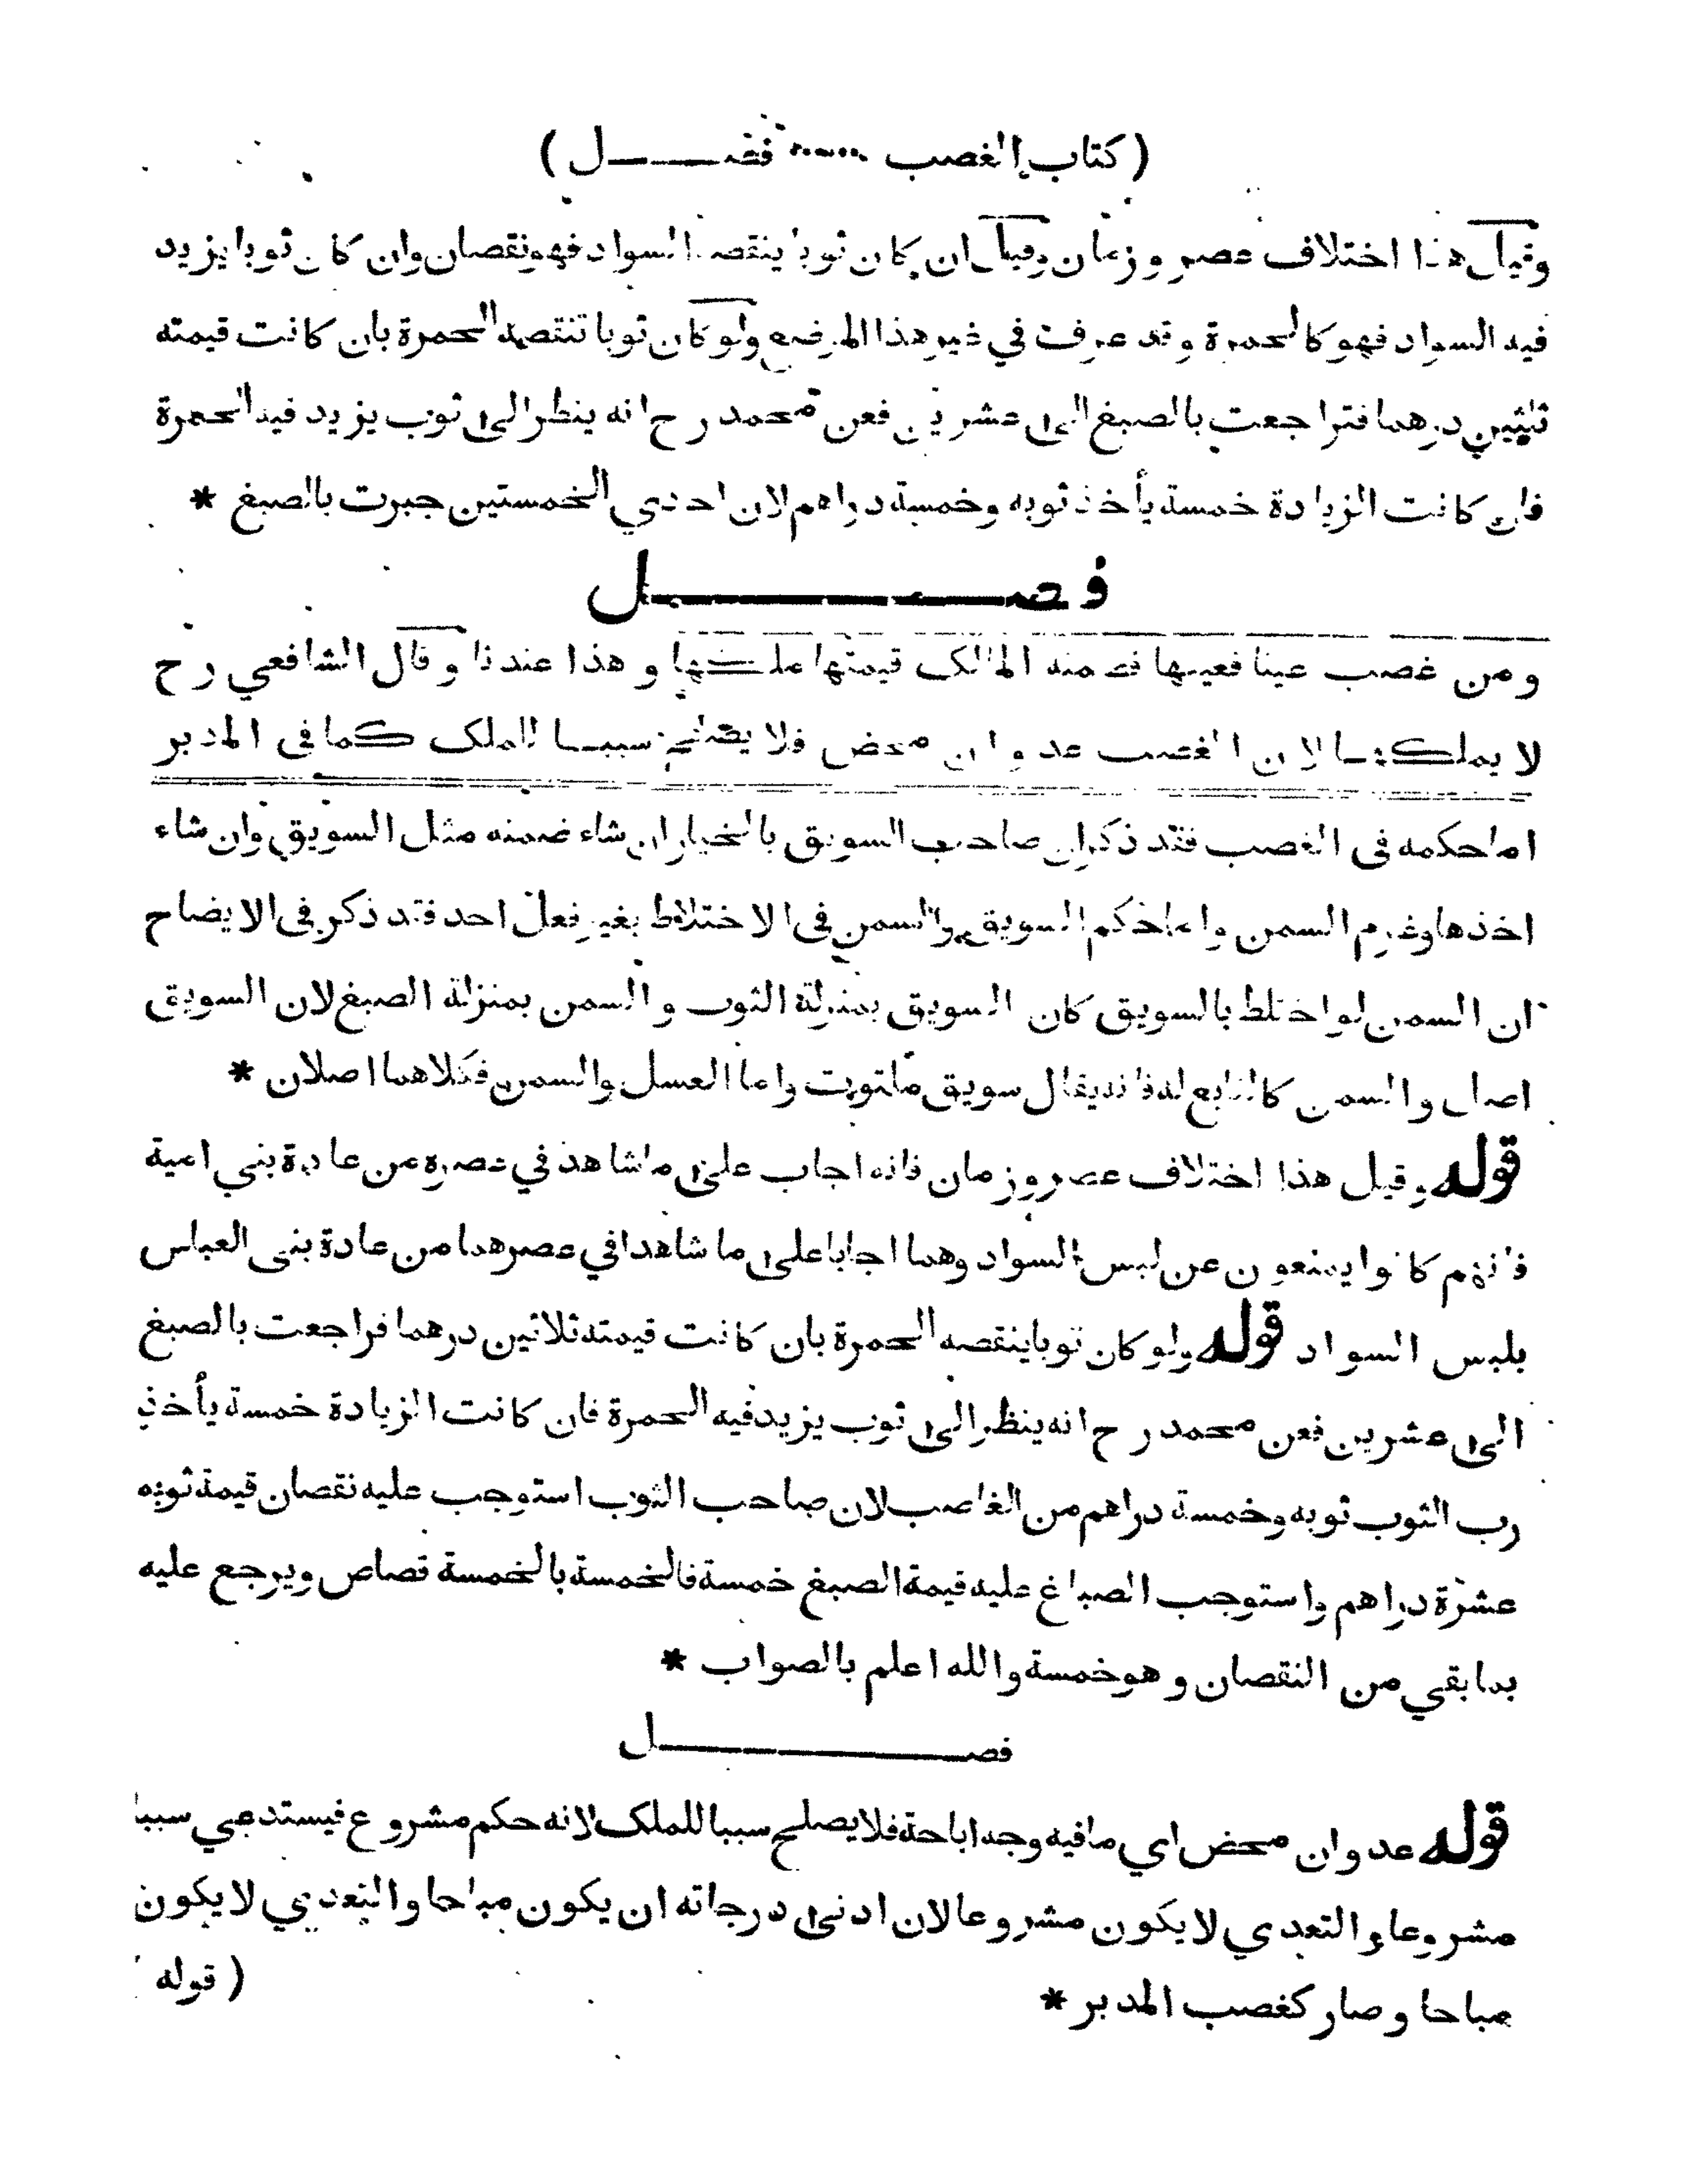 ( كتاب الغصب ... فصل )
وقيل هذا اختلاف عصر وزمان وقيل ان كان ثوبا ينقصه السواد فهو نقصان وان كان ثوبا يزيد
فيه السواد فهو كالحمرة وقد عرف في غير هذا الموضع ولو كان ثوبا تنقصه الحمرة بان كانت قيمته
ثلثين درهما فتراجعت بالصبغ الى عشرين فعن محمد رح انه ينظر الى ثوب يزيد فيه الحمرة
فان كانت الزيادة خمسة يأخذ ثوبه وخمسة دراهم لان احدي الخمستين جبرت بالصبغ *
فصل
ومن غصب عينا فغيبها فضمنه المالك قيمتها ملكها وهذا عندنا وقال الشافعي رح
لا يملكها لان الغصب عدوان محض فلا يصلح سببا للملك كما في المدبر
اما حكمه في الغصب فقد ذكر ان صاحب السويق بالخيار ان شاء ضمنه مثل السويق وان شاء
اخذها وغرم السمن واما حكم السويق والسمن في الاختلاط بغير فعل احد فقد ذكر في الايضاح
ان السمن لو اختلط بالسويق كان السويق بمنزلة الثوب و السمن بمنزلة الصبغ لان السويق
اصل والسمن كالتابع له فانه يقال سويق ملتوت واما العسل والسمن فكلاهما اصلان *
قوله وقيل هذا اختلاف عصر وزمان فانه اجاب على ما شاهد في عصره من عادة بني امية
فانهم كانوا يمنعون عن لبس السواد وهما اجابا على ما شاهدا في عصرهما من عادة بنى العباس
بلبس السواد قوله ولو كان ثوبا ينقصه الحمرة بان كانت قيمته ثلاثين درهما فراجعت بالصبغ
الى عشرين فعن محمد رح انه ينظر الى ثوب يزيد فيه الحمرة فان كانت الزيادة خمسة يأخذ
رب الثوب ثوبه وخمسة دراهم من الغاصب لان صاحب الثوب استوجب عليه نقصان قيمة ثوبه
عشرة دراهم واستوجب الصباغ عليه قيمة الصبغ خمسة فالخمسة بالخمسة قصاص ويرجع عليه
بما بقي من النقصان وهو خمسة والله اعلم بالصواب *
فصل
قوله عدوان محض اي ما فيه وجه اباحة فلا يصلح سببا للملك لانه حكم مشروع فيستدعي سببا
مشروعا والتعدي لا يكون مشروعا لان ادنى درجاته ان يكون مباحا والتعدي لا يكون
مباحا وصار كغصب المدبر *
( قوله